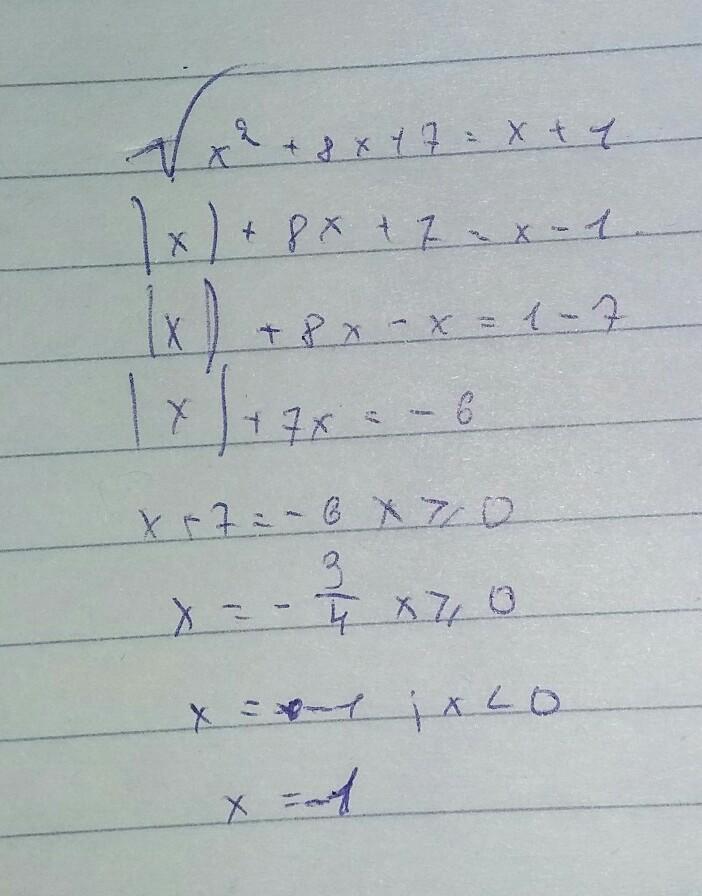 √x² + 8x + 7 = x + 1
|x| + 8x + 7 = x - 1
|x| + 8x - x = 1 - 7
|x| + 7x = - 6
x + 7 = - 6 x ≥ 0
x = - 3/4 x ≥ 0
x = -1 ; x < 0
x = -1